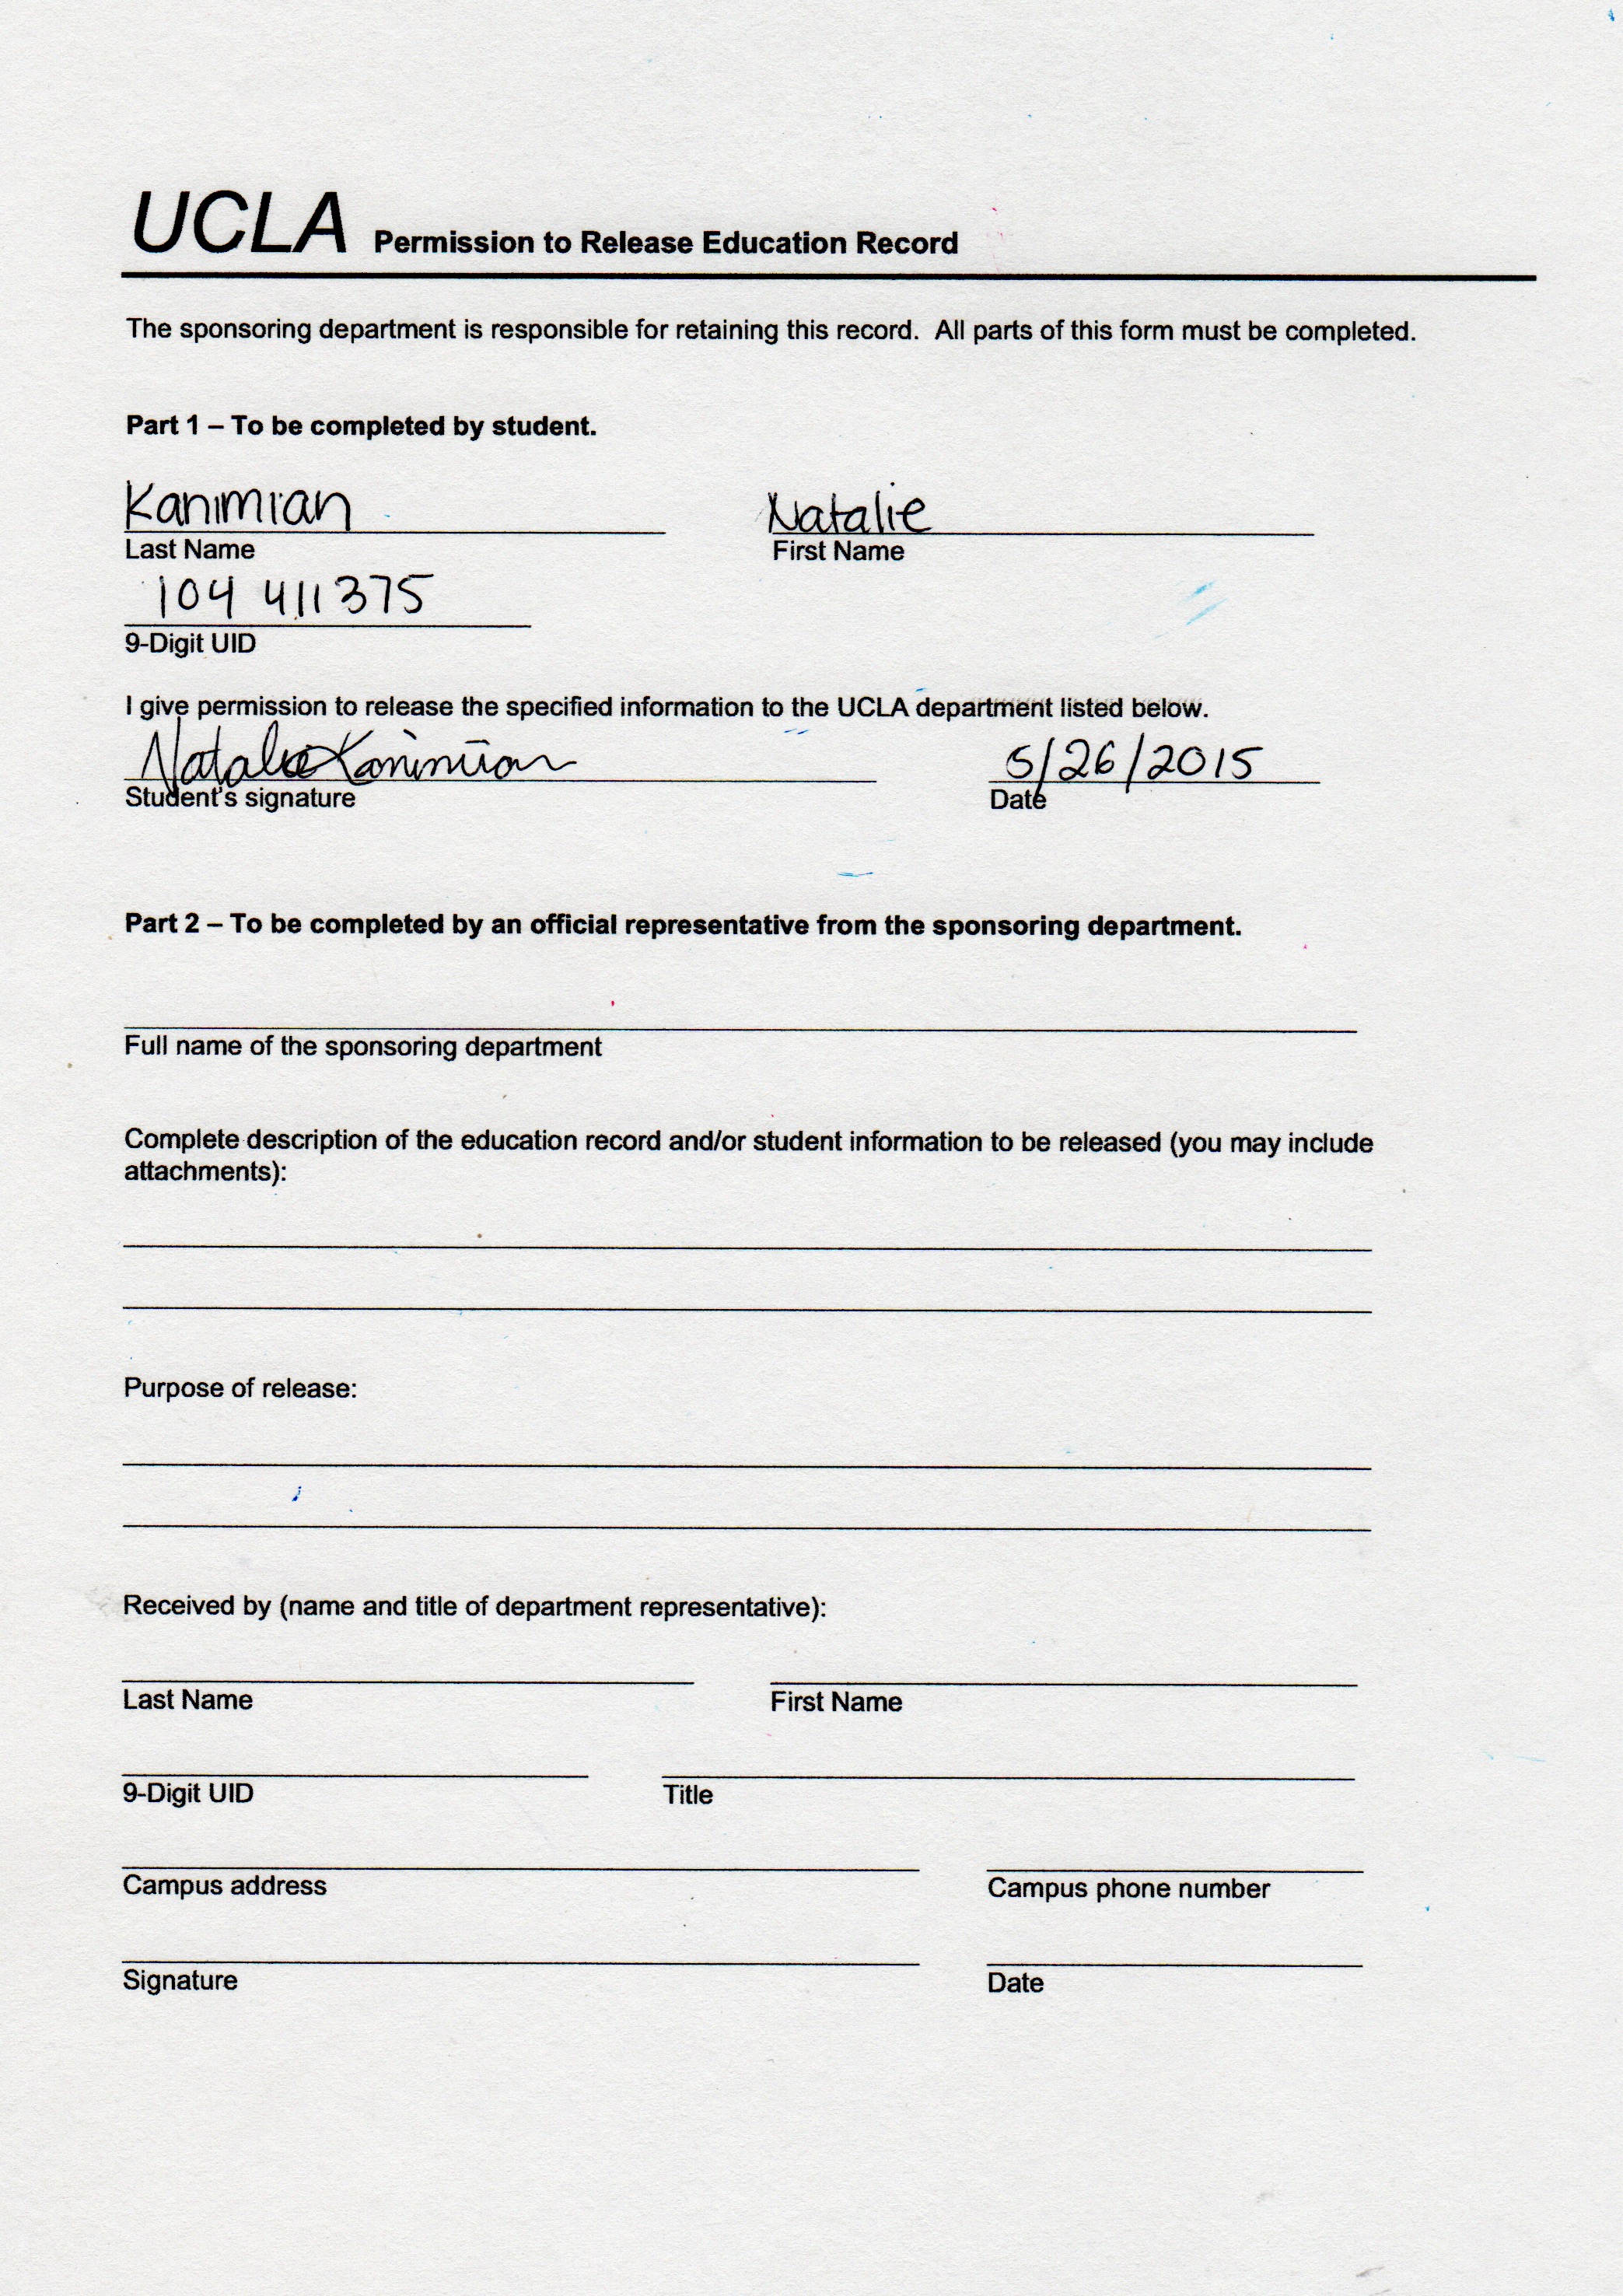 UCLA Permission to Release Education Record
The sponsoring department is responsible for retaining this record. All parts of this form must be completed.
Part 1 – To be completed by student.
Kanimian Natalie
Last Name First Name
104 411375
9-Digit UID
I give permission to release the specified information to the UCLA department listed below.
Natalie Kanimian 5/26/2015
Student's signature Date
Part 2 – To be completed by an official representative from the sponsoring department.
Full name of the sponsoring department
Complete description of the education record and/or student information to be released (you may include
attachments):
Purpose of release:
Received by (name and title of department representative):
Last Name First Name
9-Digit UID Title
Campus address Campus phone number
Signature Date